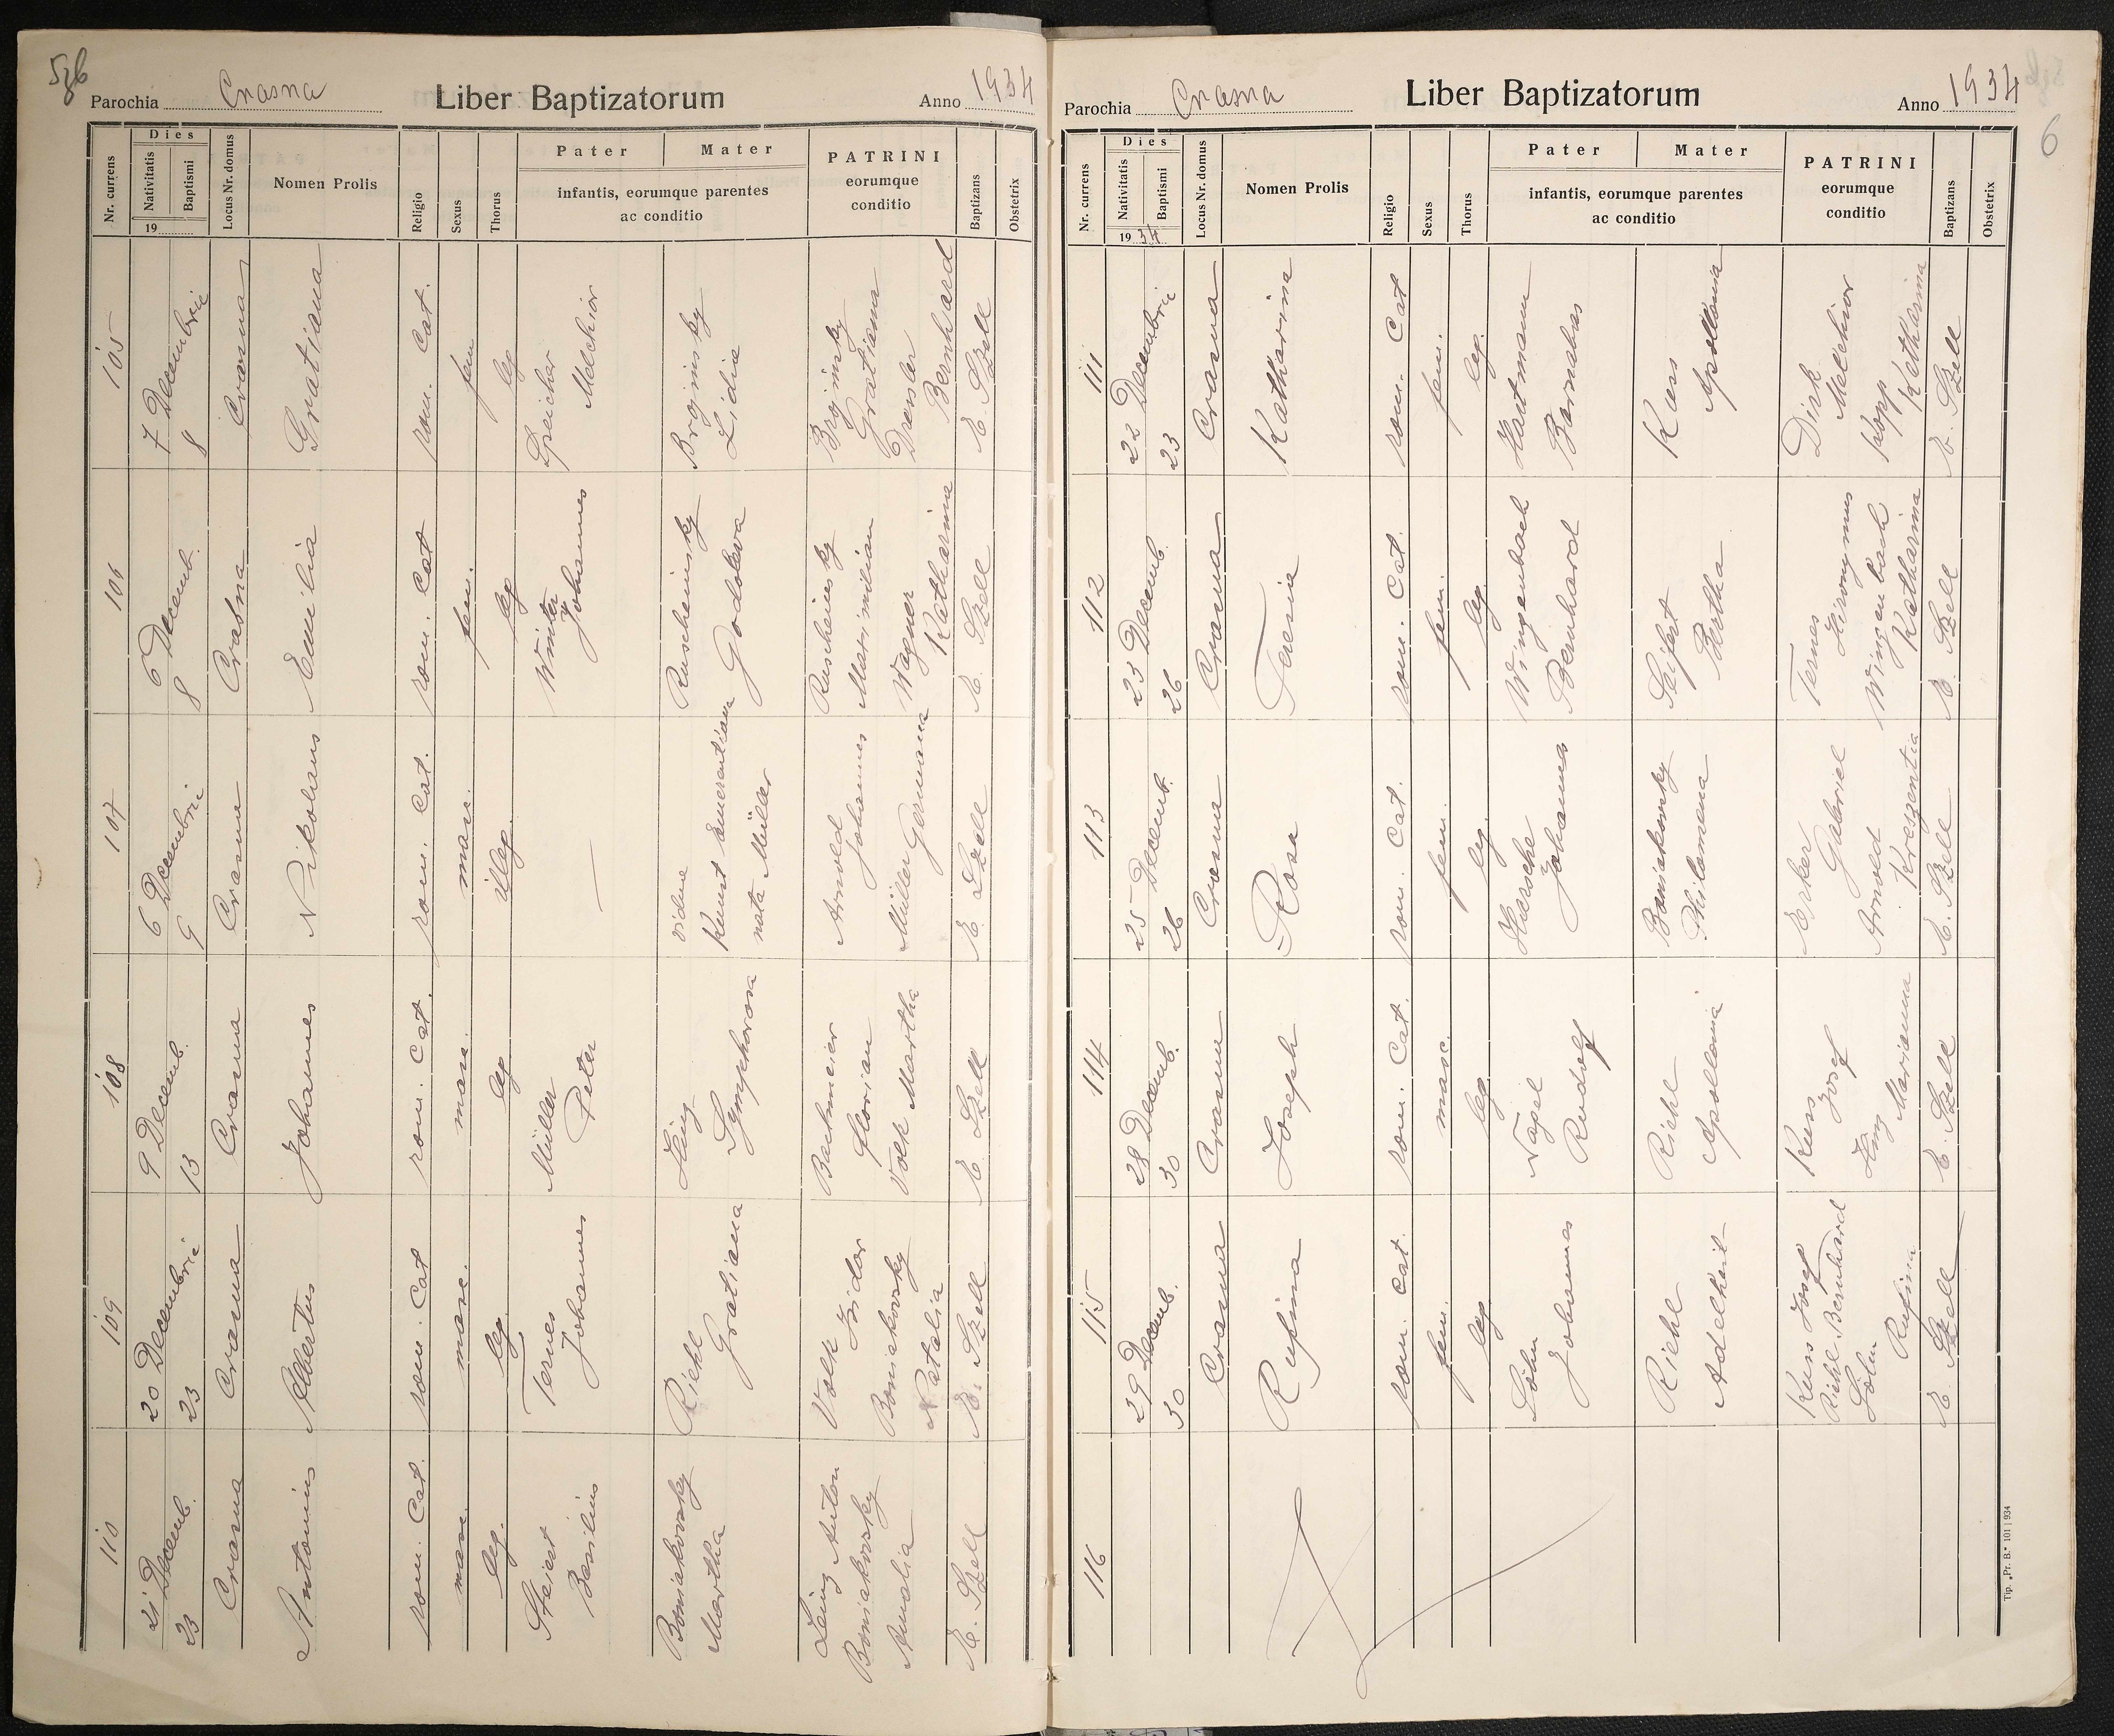 5gb
Parochia Crasna Liber Baptizatorum Anno 1934
Nr. currens
Dies
Nativitatis
Baptismi
19
Locus Nr. domus
Nomen Prolis
Religio
Sexus
Thorus
Pater
Mater
infantis, eorumque parentes
ac conditio
PATRINI
eorumque
conditio
Baptizans
Obstetrix
105
7 Decembrie
8
Crasna
Gratiana
rom. Cat.
fem
leg
Speicher
Melchior
Broginsky
Lidia
Broginsky
Gratiana
Dressler
Bernhard
E. Szell
106
6 Decemb.
8
Crasna
Emilia
rom. Cat
fem.
leg
Winter
Johannes
Ruscheinsky
Godoleva
Ruscheinsky
Maximilian
Wagner
Katharina
E. Szell
107
6 Decembrie
9
Crasna
Nikolaus
rom. Cat.
masc.
illeg.
—
vidua
Kunst Emerentiana
nata Müller
Arnold
Johannes
Müller Germana
E. Szell
108
9 Decemb.
13
Crasna
Johannes
rom. Cat.
masc.
leg
Müller
Peter
Leing
Symphorosa
Bachmeier
Florian
Volk Martha
E. Szell
109
20 Decembrie
23
Crasna
Albertus
rom. Cat
masc.
leg
Ternes
Johannes
Riehl
Gratiana
Volk
Isidor
Boniakovsky
Natalia
E. Szell
110
21 Decemb.
23
Crasna
Antonius
rom. Cat.
masc.
leg.
Steiert
Basilius
Boniakovsky
Martha
Leing Anton
Boniakovsky
Amalia
E. Szell
6
Parochia Crasna Liber Baptizatorum Anno 1934
Nr. currens
Dies
Nativitatis
Baptismi
19 34
Locus Nr. domus
Nomen Prolis
Religio
Sexus
Thorus
Pater
Mater
infantis, eorumque parentes
ac conditio
PATRINI
eorumque
conditio
Baptizans
Obstetrix
111
22 Decembrie
23
Crasna
Katharina
rom. Cat
fem.
leg.
Hartmann
Barnabas
Kuss
Apollonia
Dirk
Melchior
Kopp
Katharina
E. Szell
112
23 Decemb.
26
Crasna
Teresia
rom. Cat.
fem.
leg
Wingenbach
Bernhard
Seifert
Bertha
Ternes
Hironymus
Wingenbach
Katharina
E. Szell
113
25 Decemb.
26
Crasna
Rosa
rom. Cat.
fem.
leg.
Johannes
Boniakovsky
Philomena
Erker
Gabriel
Arnold
Kreszentia
E. Szell
114
28 Decemb.
30
Crasna
Joseph
rom. Cat.
masc.
leg
Nagel
Rudolf
Riehl
Apollonia
Kuss
Josef
Marianna
E. Szell
115
29 Decemb.
30
Crasna
Rufina
rom. Cat.
fem.
leg
Söhn
Johannes
Riehl
Adelheit
Kuss Josef
Riehl Bernhard
Söhn
Rufina
E. Szell
116
Tip. „Pr. B." 101 | 934